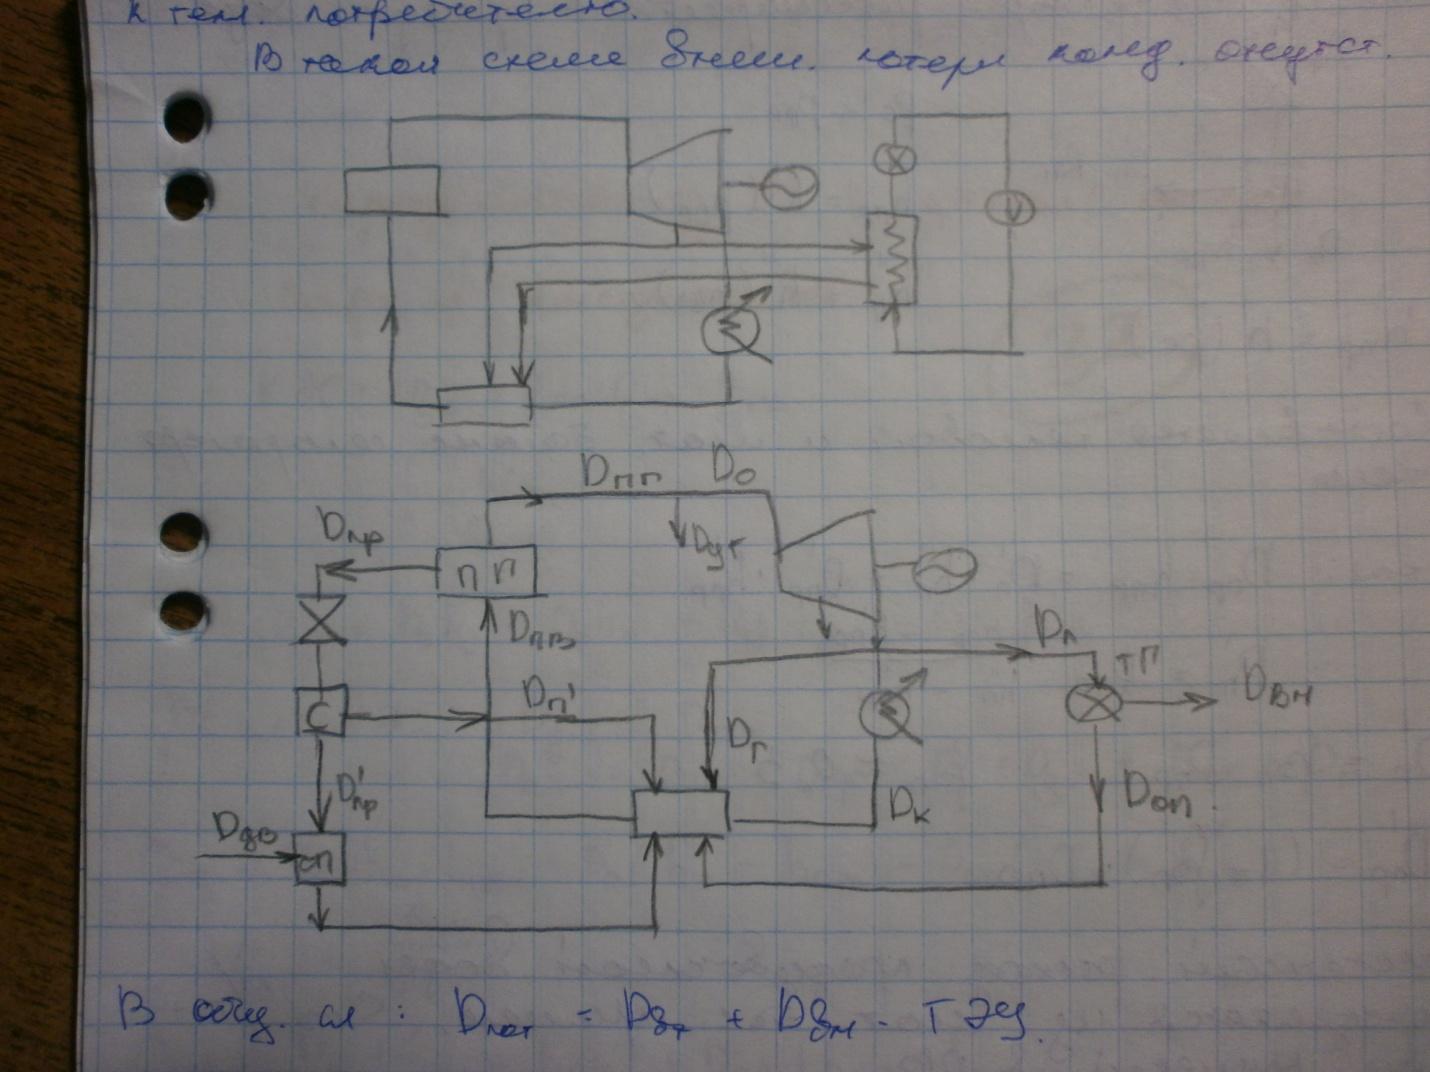 к тепл. потребителю.
В такой схеме внеш. потери конд. отсутст.
Dпп D0
Dпр
Dут
ПГ
Dпв
Dп
ТП
Dвн
С
Dп'
Dг
D'пр
Dк
Dоп.
Dдв
СП
В общ. сл: Dпот = Dвт + Dвн - ТЭЦ.